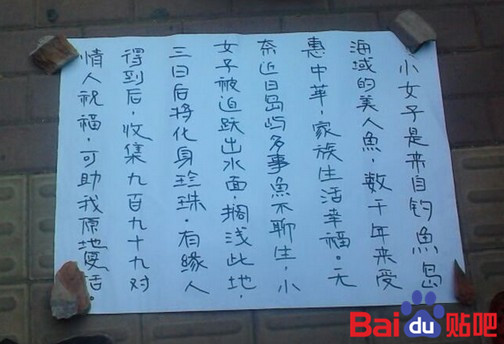 小女子是来自钓魚岛
海域的美人魚，数千年来受
惠中华，家族生活幸福。无
奈近日岛屿多事魚不聊生，小
女子被迫跃出水面，搁浅此地，
三日后将化身珍珠。有缘人
得到后，收集九百九十九对
情人祝福，可助我原地复活。
Bai du 贴吧